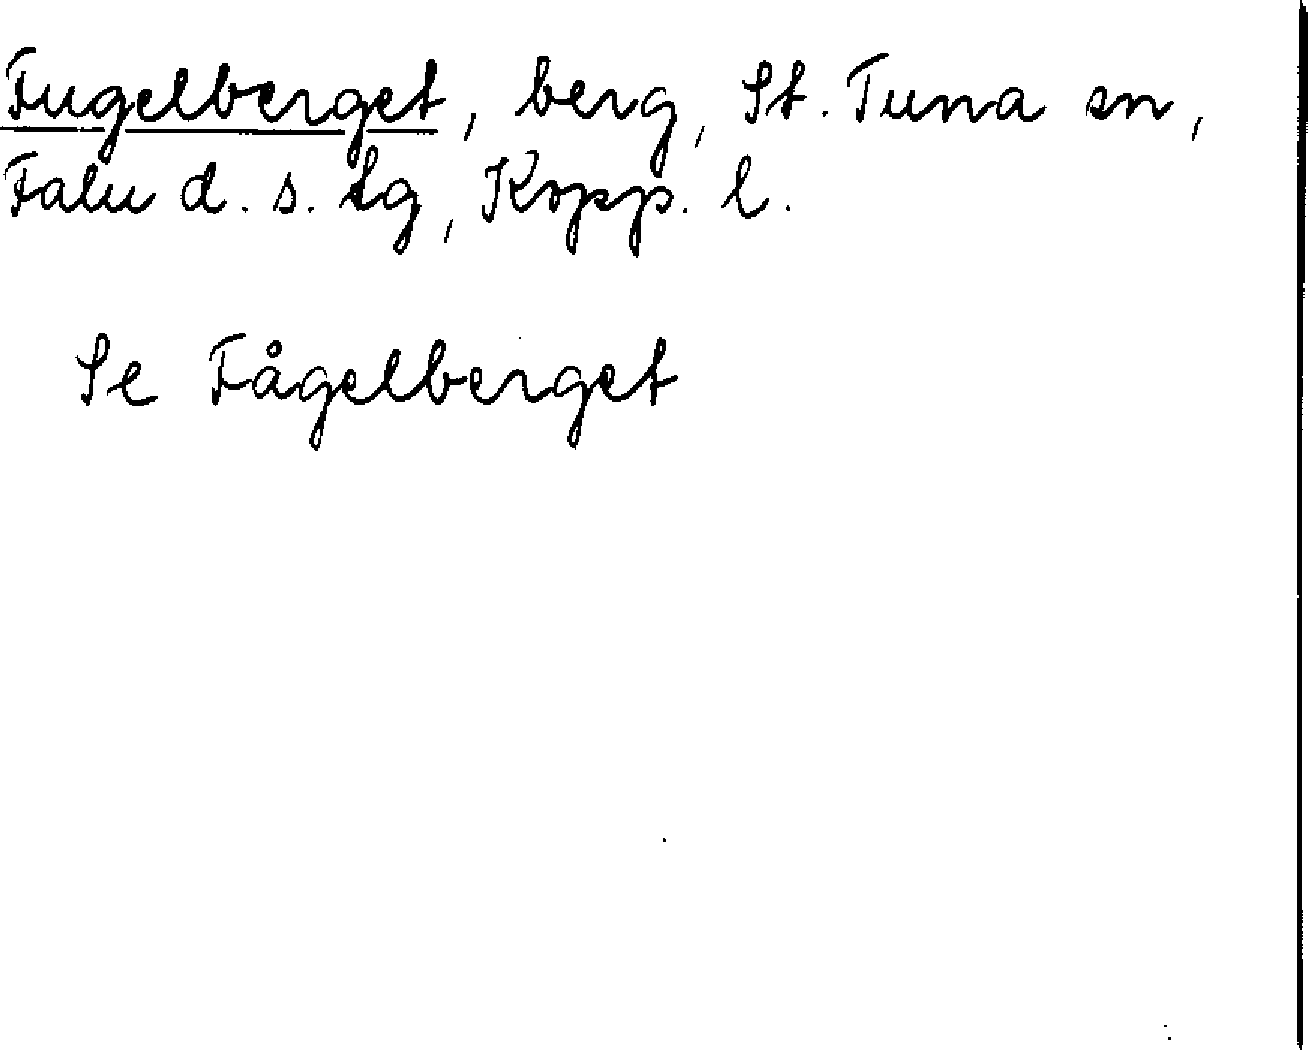 Fugelberget, berg, St. Tuna sn,
Falu d. s. tg, Kopp. l.
Se Fågelberget